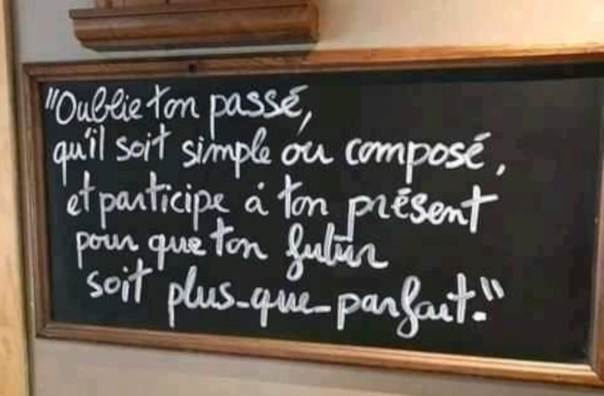 "Oublie ton passé,
qu'il soit simple ou composé,
et participe à ton présent
pour que ton futur
soit plus-que-parfait."